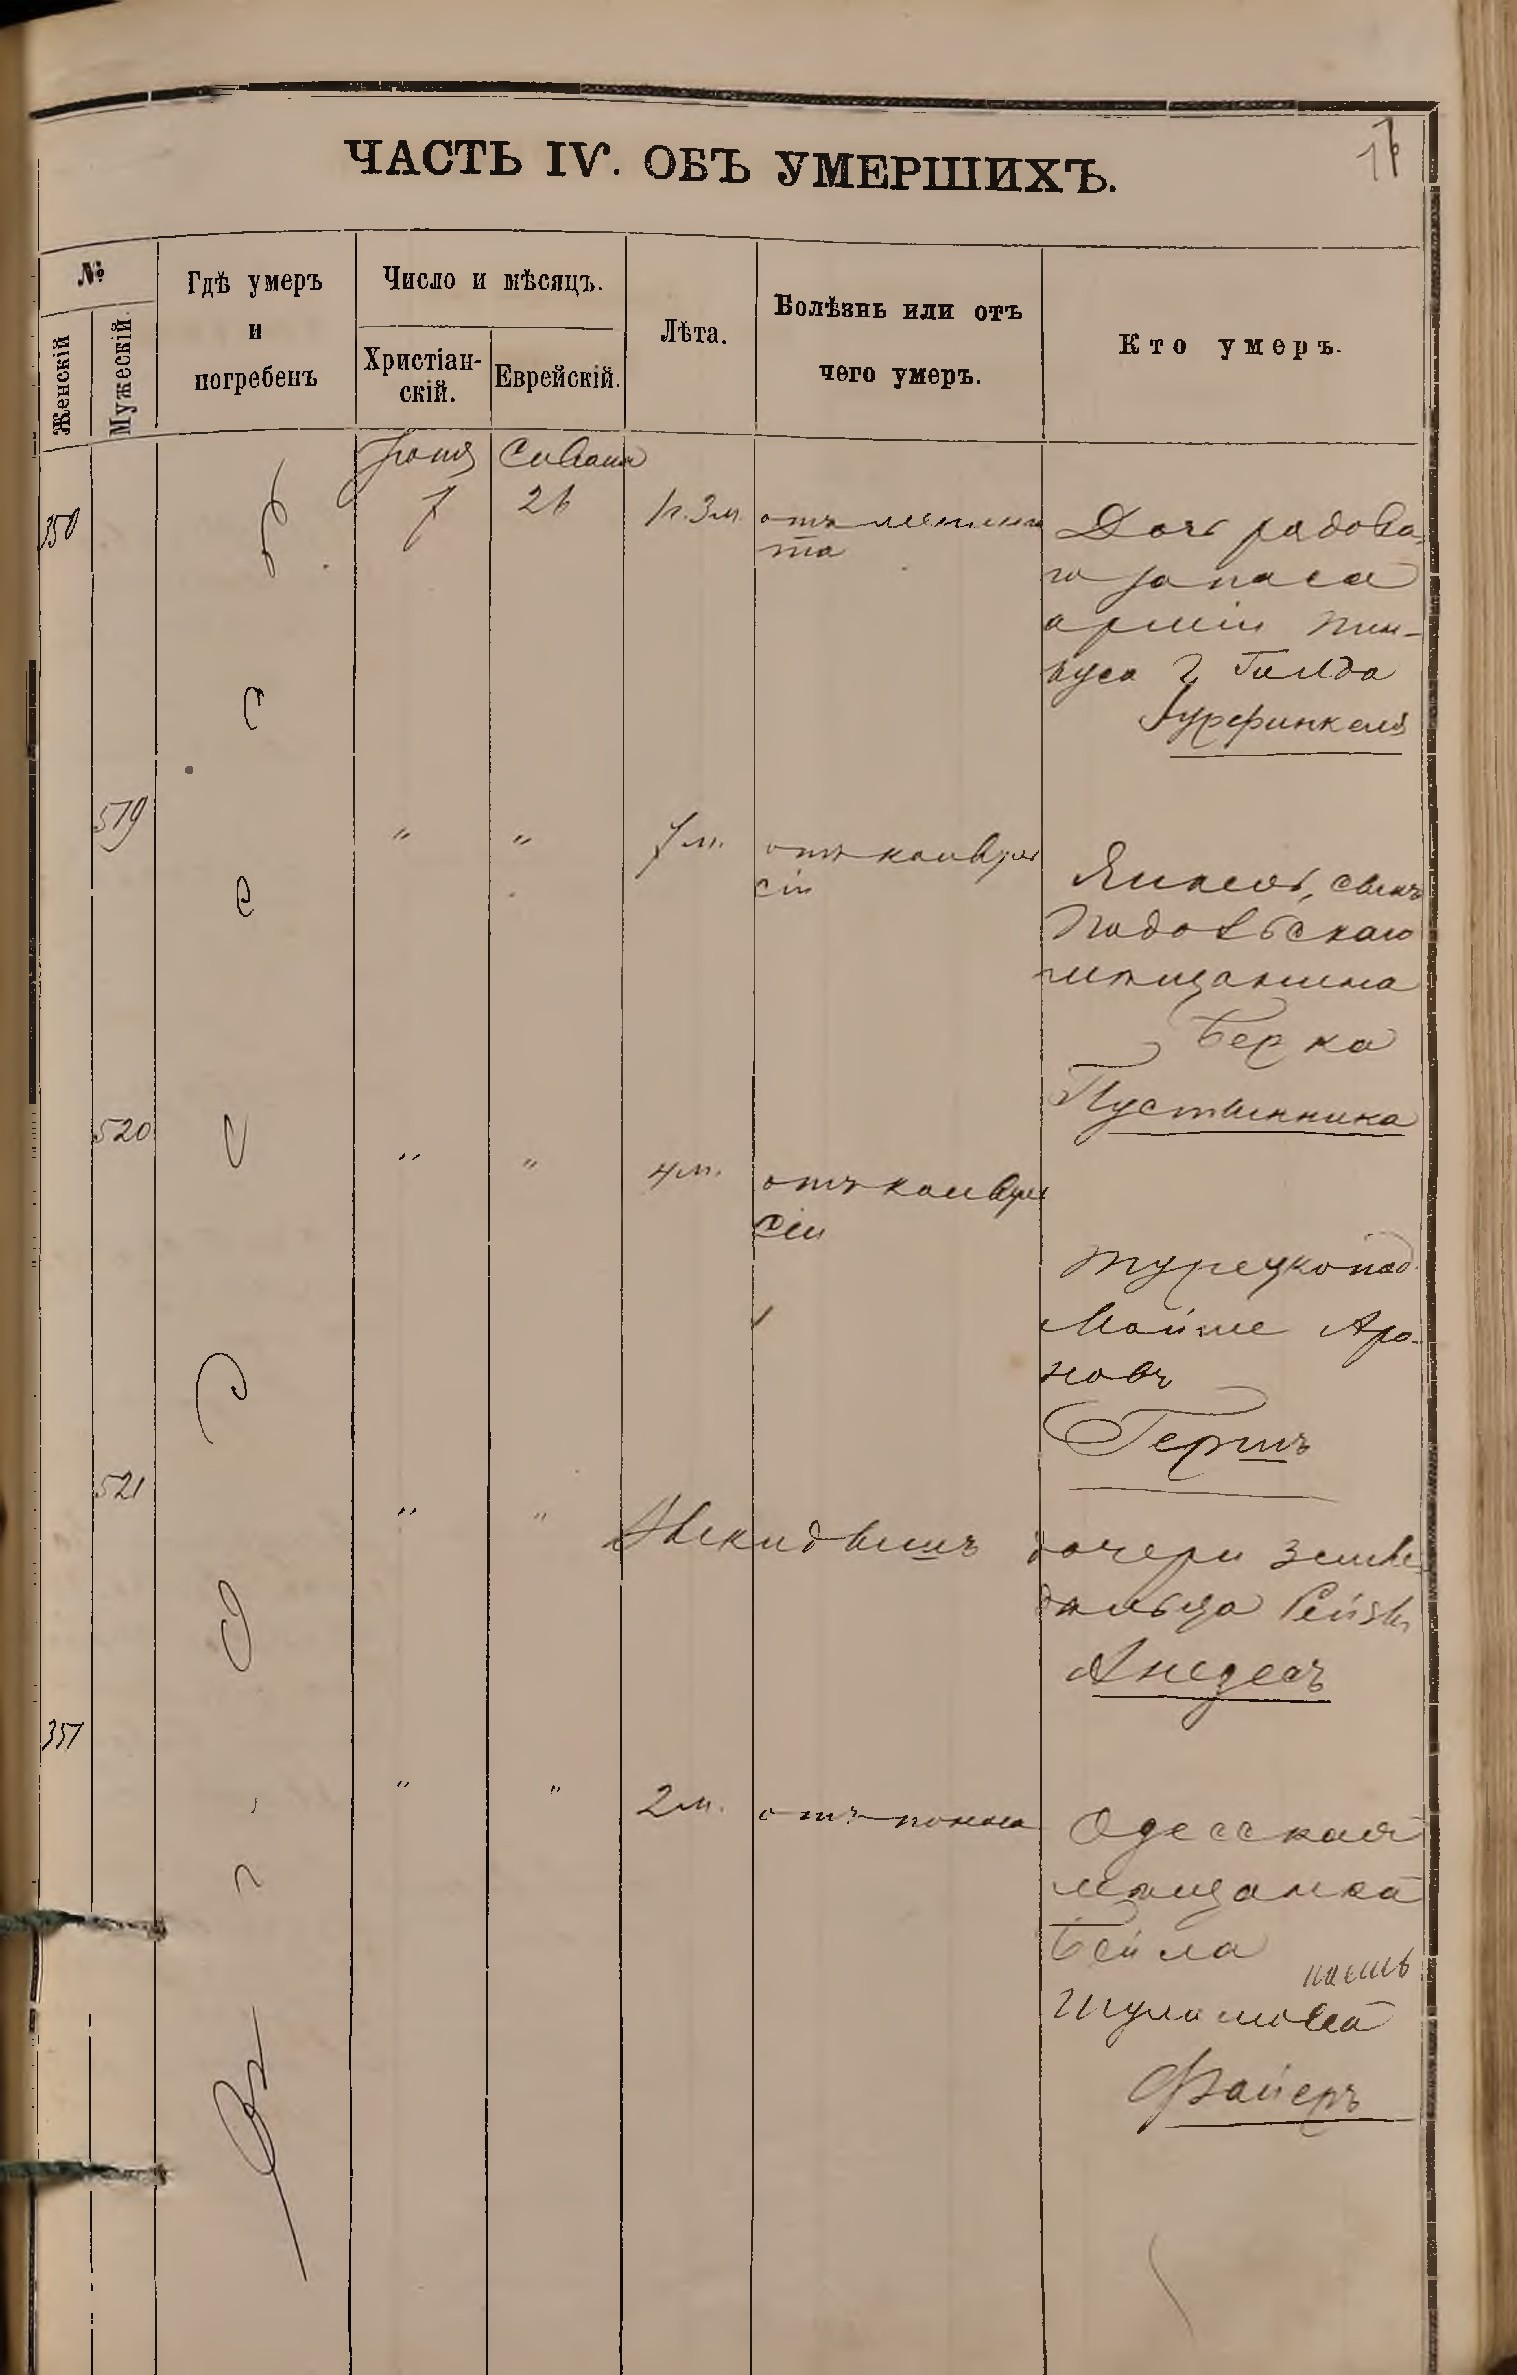 ЧАСТЬ IV. ОБЪ УМЕРШИХЪ.
№
Женскій
Мужескій.
Гдѣ умеръ
и
погребенъ
Число и мѣсяцъ.
Христіан-
скій.
Еврейскій.
Лѣта.
Болѣзнь или отъ
чего умеръ.
Кто умеръ.
Іюня Сивана
350
7 26 1г. 3м. отъ менинги
та
Дочь рядова-
го запаса
арміи Пин-
куса Гилда
Гурфинкеля
519
" " 7 м. отъ конвул
сіи
Янкель, сынъ
Подольскаго
мѣщанина
Берка
Пустынника
520
" " 4 м. отъ конвул
сіи
Турецкопод.
Мойше Аро-
новъ
Гершъ
521
" " Выкидышъ дочери земле-
дѣльца Рейзи
351
" " 2 м. отъ поноса
Одесская
мѣщанка
Бейла
Шулимова
Файеръ
В г. О д е с с ѣ